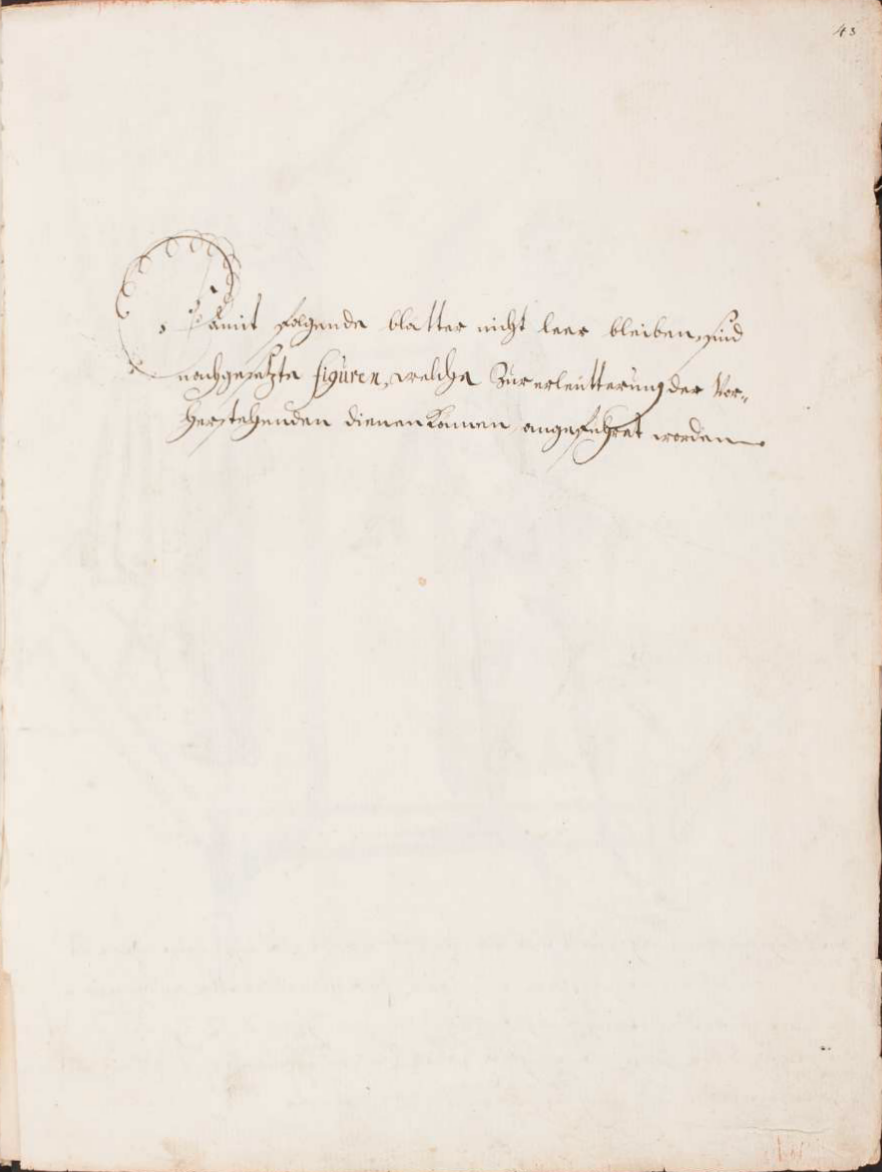 43
Damit folgende blatter nicht leer bleiben, sind
nachgesetzte figuren, welche Zur erleutterung der Vor-
herstehenden dienen Konnen angeführet worden